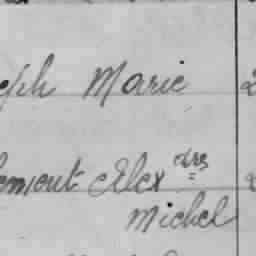 eph Marie
lement Alex dre
Michel